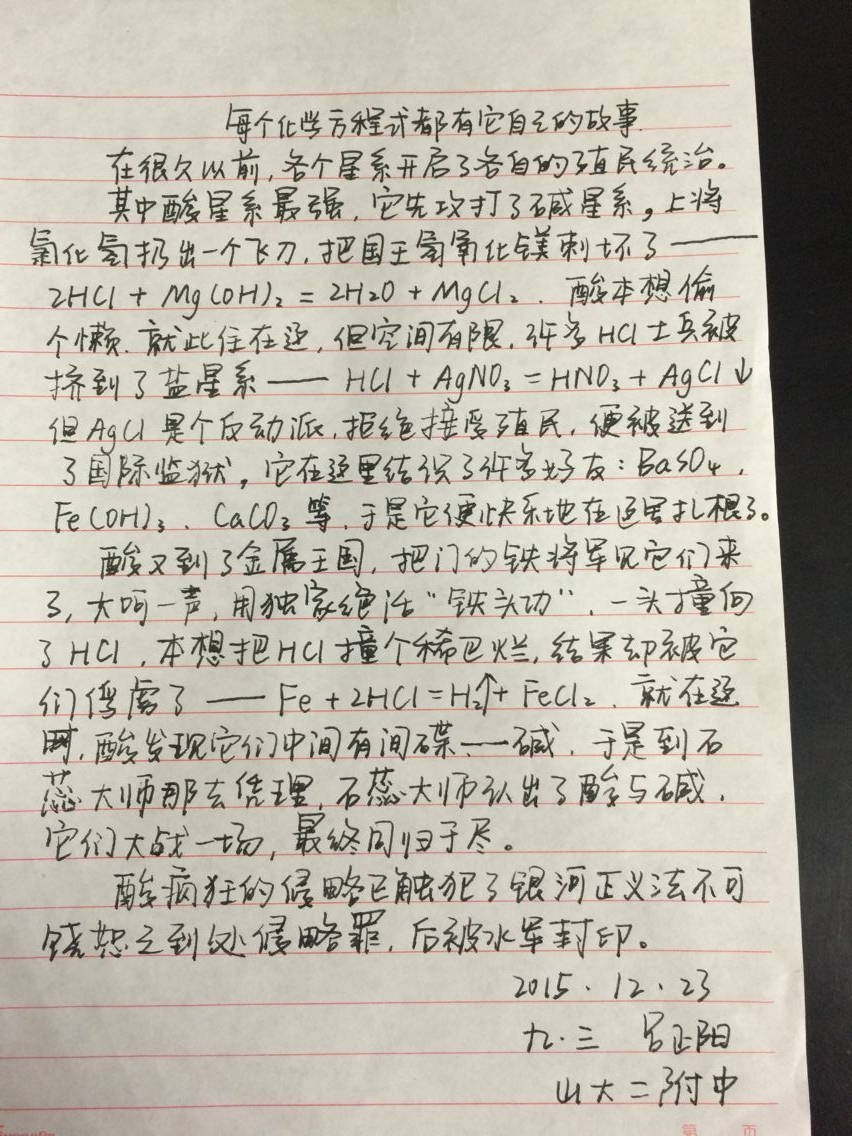 每个化学方程式都有它自己的故事
在很久以前,各个星系开启了各自的殖民统治。
其中酸星系最强,它先攻打了碱星系。上将
氯化氢扔出一个飞刀,把国王氢氧化镁刺坏了——
2HCl + Mg(OH)₂ = 2H₂O + MgCl₂. 酸本想偷
个懒.就此住在这,但空间有限,许多HCl士兵被
挤到了盐星系—— HCl + AgNO₃ = HNO₃ + AgCl↓
但AgCl是个反动派,拒绝接受殖民,便被送到
了国际监狱。它在这里结识了许多好友:BaSO₄、
Fe(OH)₃、CaCO₃等,于是它便快乐地在这里扎根了。
酸又到了金属王国,把门的铁将军见它们来
了,大呵一声,用独家绝活"铁头功",一头撞向
了HCl,本想把HCl撞个稀巴烂,结果却被它
们俘虏了—— Fe + 2HCl = H₂↑ + FeCl₂. 就在这
时,酸发现它们中间有间碟——碱,于是到石
蕊大师那去凭理,石蕊大师认出了酸与碱,
它们大战一场,最终同归于尽。
酸疯狂的侵略已触犯了银河正义法不可
饶恕之到处侵略罪,后被水军封印。
2015.12.23
九.三 吕正阳
山大二附中
第 页